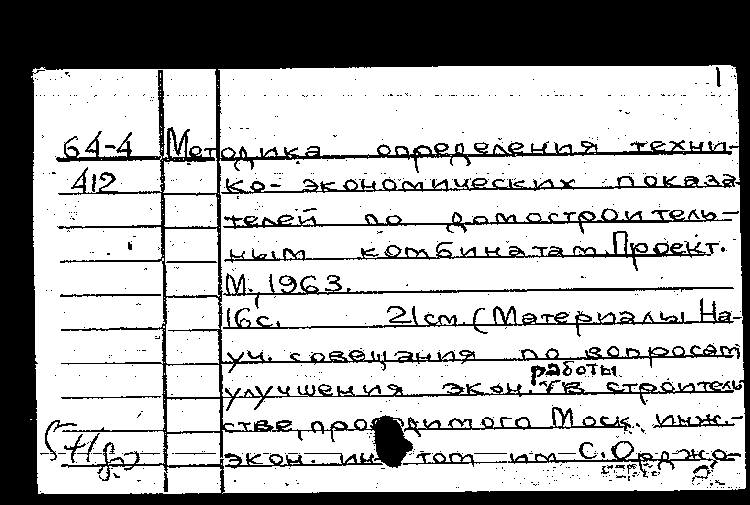 1
64-4 Методика определения техни-
412 ко-экономических показа-
телей по домостроитель-
ным комбинатам. Проект.
М., 1963.
16с. 21см. (Материалы На-
уч. совещания по вопросам
работы
улучшения экон. в строитель
стве, проводимого Моск. инж.-
экон. ин том им С. Орджо-